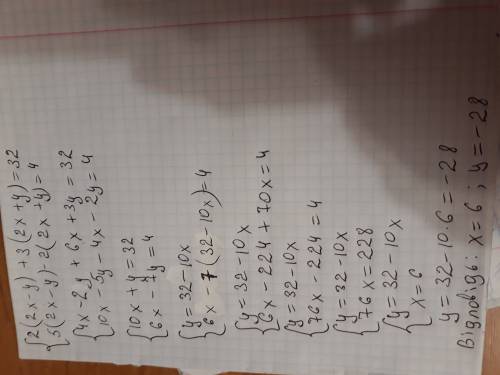 {2(2x-y)+3(2x+y)=32
{5(2x-y)-2(2x+y)=4
{4x-2y+6x+3y=32
{10x-5y-4x-2y=4
{10x+y=32
{6x-7y=4
{y=32-10x
{6x-7(32-10x)=4
{y=32-10x
{6x-224+70x=4
{y=32-10x
{76x-224=4
{y=32-10x
{76x=228
{y=32-10x
{x=6
y=32-10·6=-28
Відповідь: x=6; y=-28